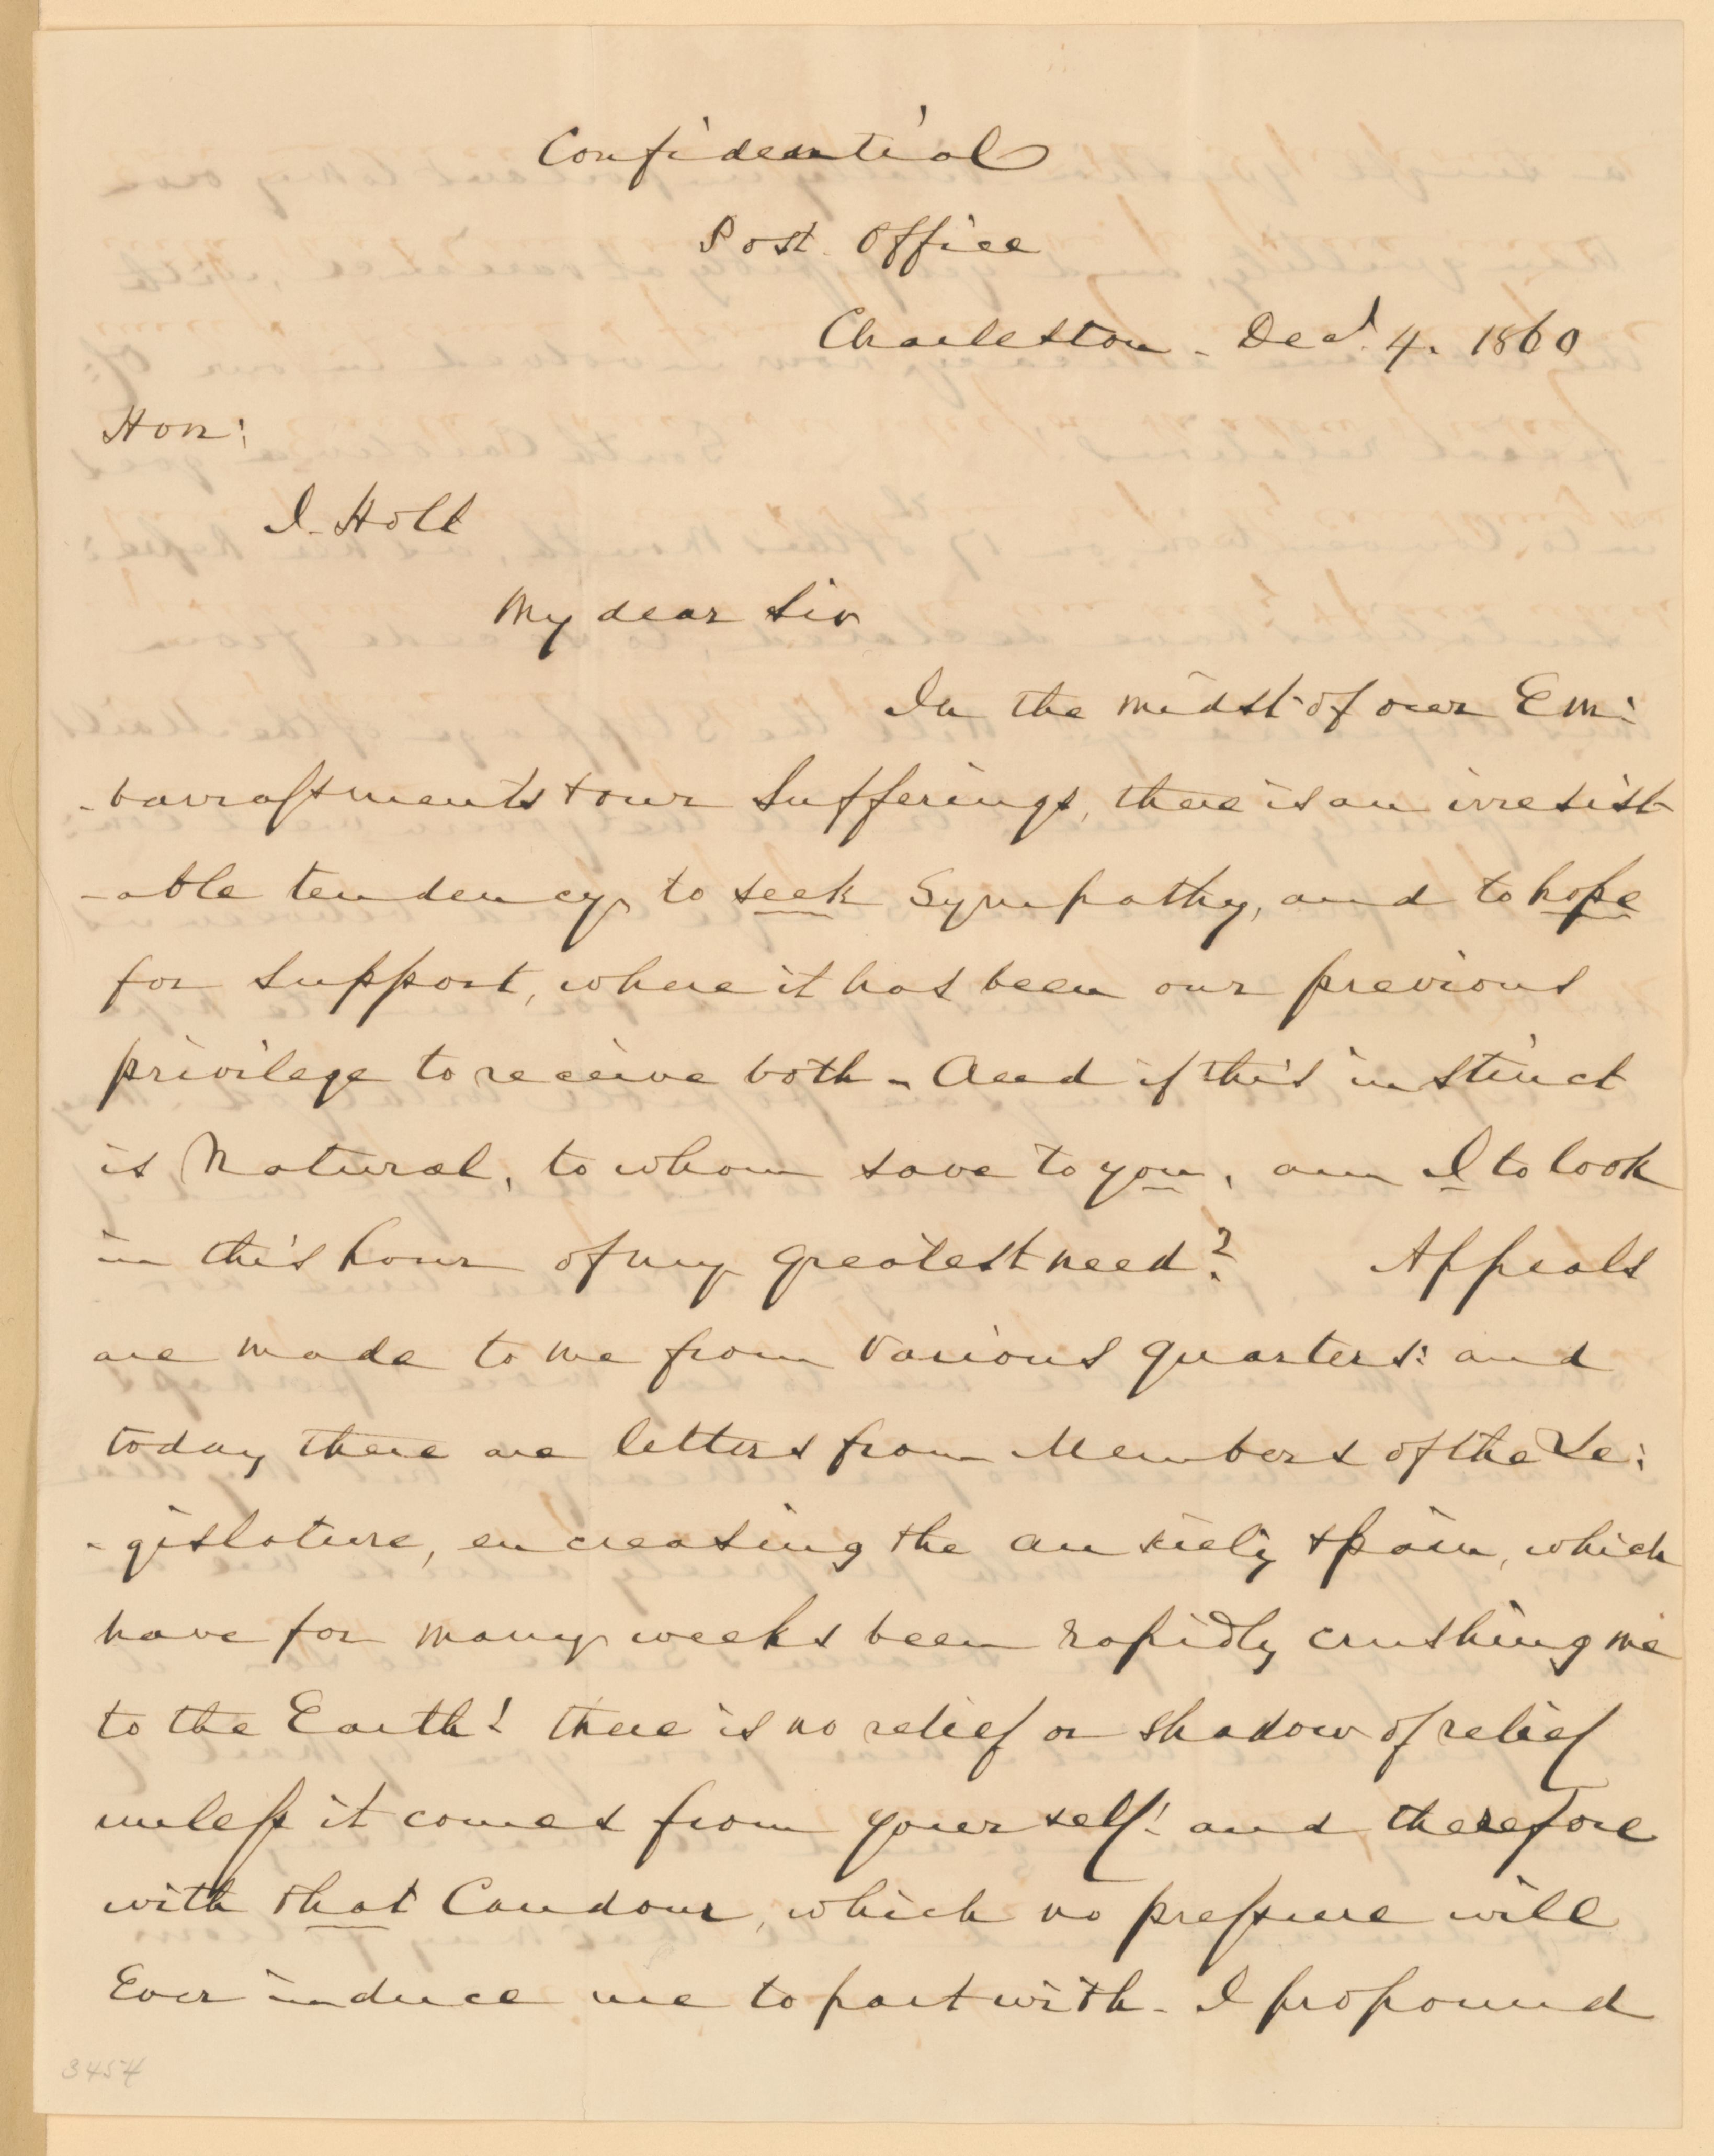 Confidential
Post Office
Charleston - Decr. 4. 1860
Hon:
J. Holt
My dear Sir
In the midst of our Em:
-barrassments & our sufferings, there is an irresist
-able tendency to seek Sympathy, and to hope
for support, where it has been our previous
privilege to receive both - And if this instinct
is Natural, to whom save to you, am I to look
in this hour of my greatest need? Appeals
are made to me from various quarters: and
today there are letters from Members of the Le:
-gislature, encreasing the anxiety & pain, which
have for many weeks been rapidly crushing me
to the Earth! there is no relief or shadow of relief
unless it comes from yourself! and therefore
with that Candour, which no pressure will
Ever induce me to part with - I propound
3454